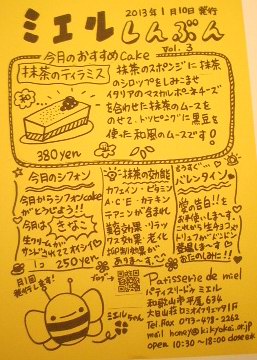 2013年1月10日発行
ミエルしんぶん
vol.3
今月のおすすめCake
抹茶のティラミス
抹茶のスポンジに抹茶
のシロップをしみこませ
イタリアのマスカルポーネチーズ
を合わせた抹茶のムースを
のせて、トッピングに黒豆を
使った和風のムースです!
380yen
今月のシフォン
今月からシフォンcake
がとうじょう!!
今月は きなこ
生クリームが
サンドされててオイシイ
1コ 250yen
抹茶の効能
カフェイン・ビタミン
A・C・E・カテキン
テアニンが含まれ
覚効果・リラッ
クス効果 老化
あります
もうすぐ
バレンタイン
愛の告白!!を
お手伝いします。
これから生チョコ
トリュフがドンドン
登場しまーす
お楽しみに!!
月1回
発行します!
ブログ
ミエルちゃん
Patisserie de miel
パティスリードゥミエル
和歌山市平尾634
大日山荘
Tel.Fax 073-478-3262
mail honey@kikyokai.or.jp
open 10:30~18:00